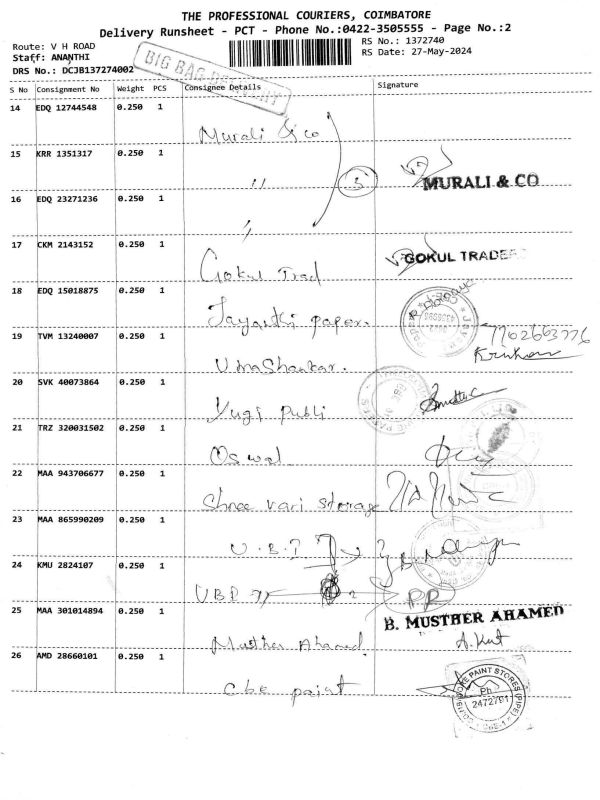 THE PROFESSIONAL COURIERS, COIMBATORE
Delivery Runsheet - PCT - Phone No.:0422-3505555 - Page No.:2
Route: V H ROAD
RS No.: 1372740
Staff: ANANTHI
RS Date: 27-May-2024
DRS No.: DCJB137274002
BIG BAG
S No Consignment No Weight PCS Consignee Details Signature
14 EDQ 12744548 0.250 1
Murali & co
15 KRR 1351317 0.250 1
" 3 MURALI & CO
16 EDQ 23271236 0.250 1
"
17 CKM 2143152 0.250 1
Gokul Trad GOKUL TRADERS
18 EDQ 15018875 0.250 1
Jayanthi paper.
19 TVM 13240007 0.250 1
Uma Shankar.
20 SVK 40073864 0.250 1
Yugi Publi
21 TRZ 320031502 0.250 1
Oswal
22 MAA 943706677 0.250 1
Shree vari storage
23 MAA 865990209 0.250 1
U.B.I
24 KMU 2824107 0.250 1
UBI " 2 PP
25 MAA 301014894 0.250 1
B. MUSTHER AHAMED
Musther Ahamed.
26 AMD 28660101 0.250 1
Cbe paint
PAINT STORES (PIPE)
Ph
2472791